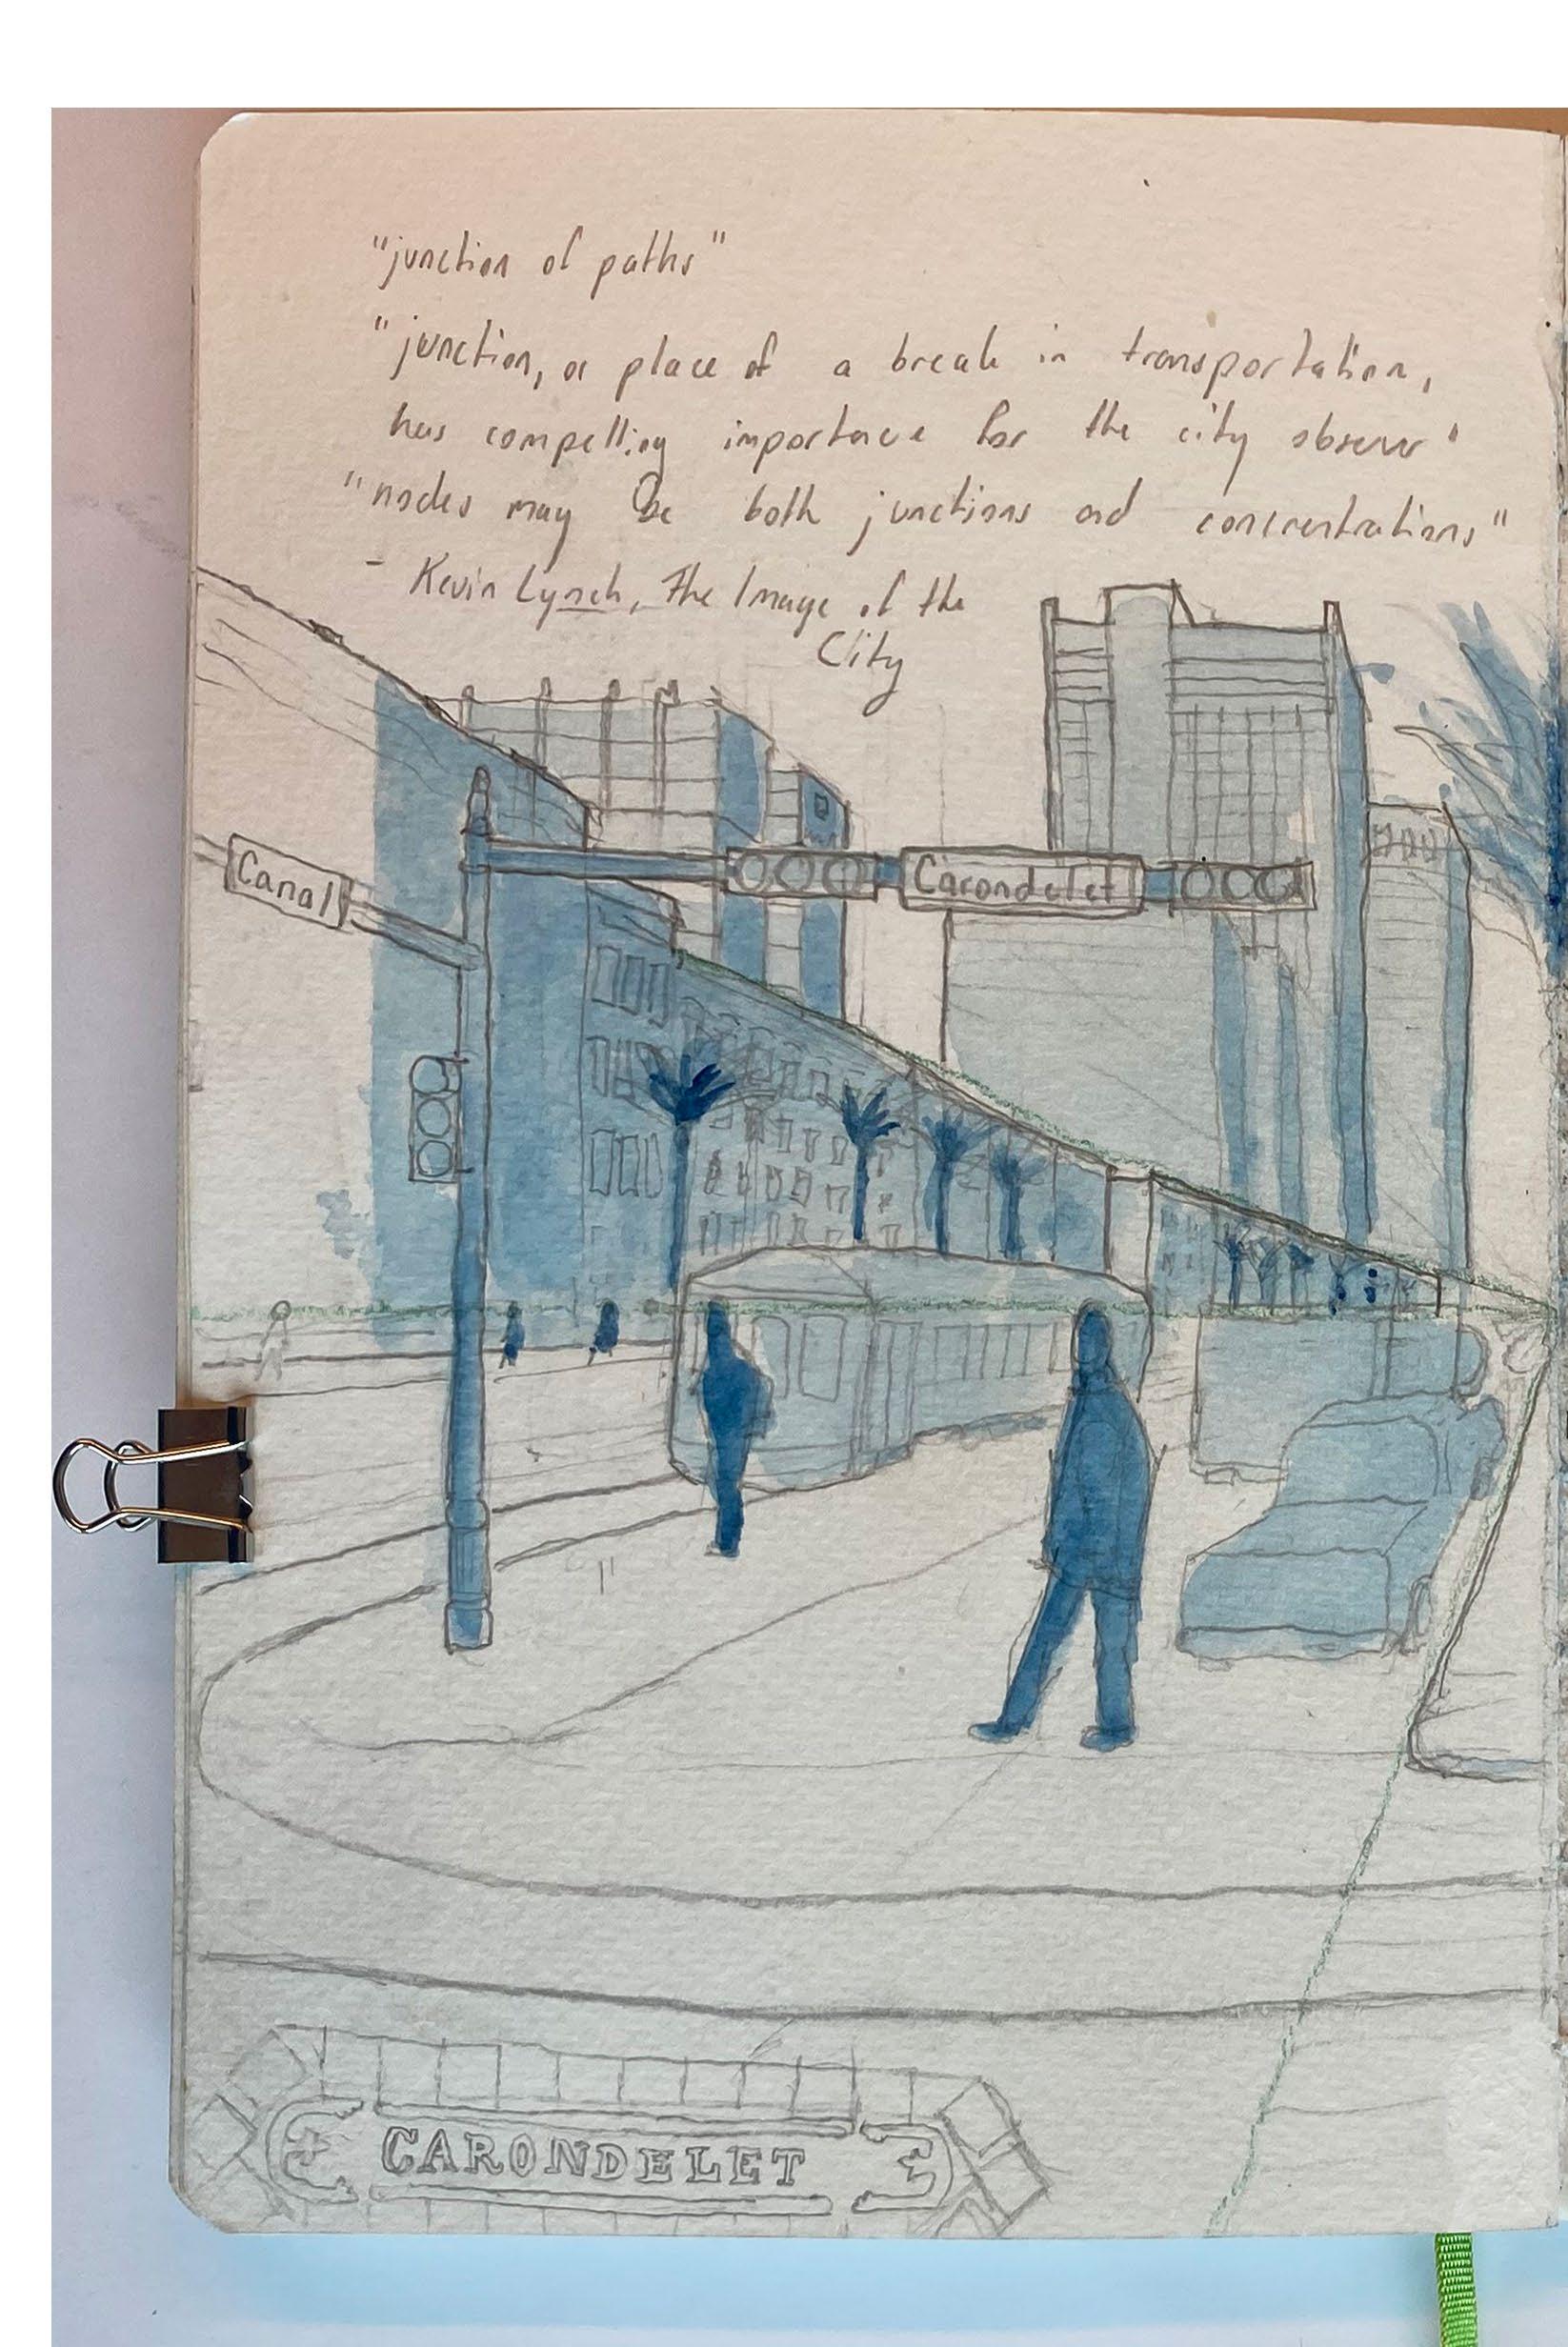 "junction of paths"
"junction, or place of a break in transportation,
has compelling importance for the city observer"
"nodes may be both junctions and concentrations"
- Kevin Lynch, The Image of the
City
Canal
Carondelet
CARONDELET